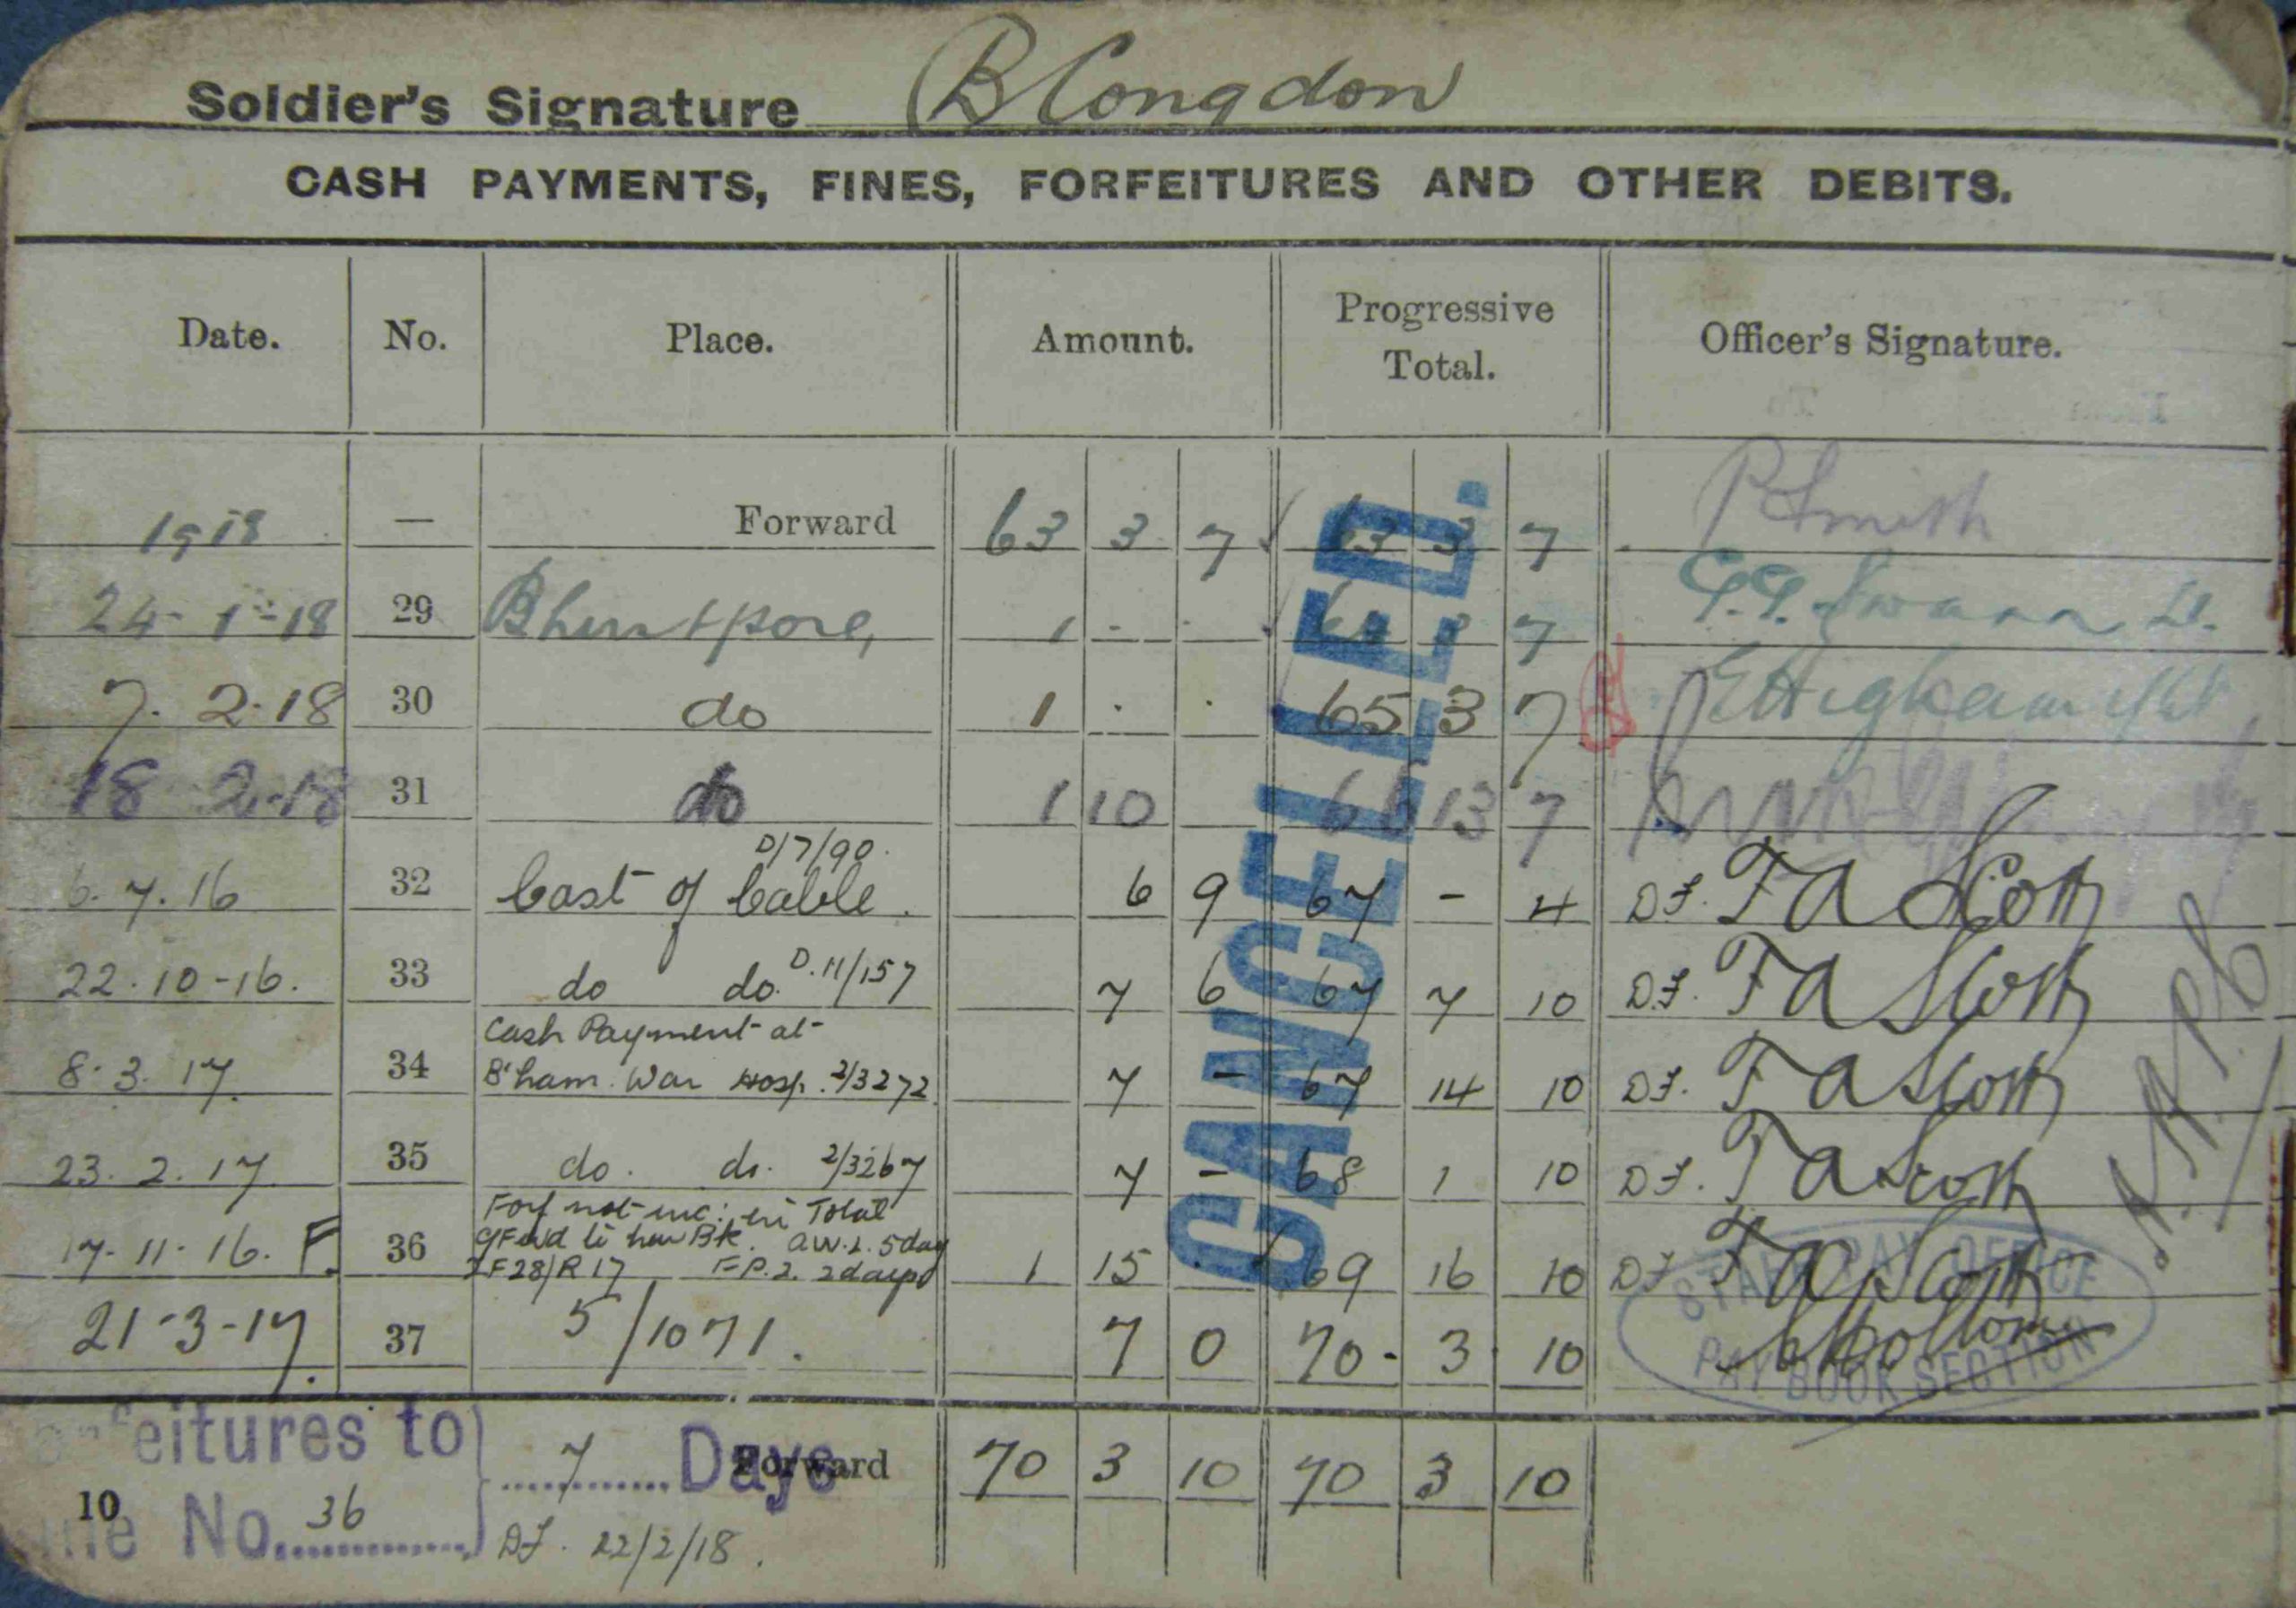 Soldier's Signature B Congdon
CASH PAYMENTS, FINES, FORFEITURES AND OTHER DEBITS.
Date. No. Place. Amount. Progressive Total. Officer's Signature.
1918 — Forward 63 3 7 63 3 7 P Smith
24-1-18 29 1 - - 64 3 7 Swann Lt.
7.2.18 30 do 1 . . 65 3 7 Higham
18 2.18 31 do 1 10 66 13 7
D/7/90.
6.7.16 32 Cost of Cable. 6 9 67 - 4 DF. F A Scott
22.10-16. 33 do do. D.11/157 7 6 67 7 10 DF. F A Scott
Cash Payment at
8.3.17. 34 B'ham. War Hosp. 2/3272 7 - 67 14 10 DF. F A Scott
23.2.17 35 do. do. 2/3267 7 - 68 1 10 DF. F A Scott
Forf not inc: in Total
Fwd to new Bk. A.W.L. 5 days
17-11-16. F. 36 F28/R17 F.P.2. 2 days 1 15 - 69 16 10 DF F A Scott
21-3-17. 37 5/1071. 7 0 70. 3 10
STAFF PAY OFFICE
PAY BOOK SECTION
CANCELLED.
eitures to 7 Days Forward 70 3 10 70 3 10
10
No. 36 DF. 22/2/18.